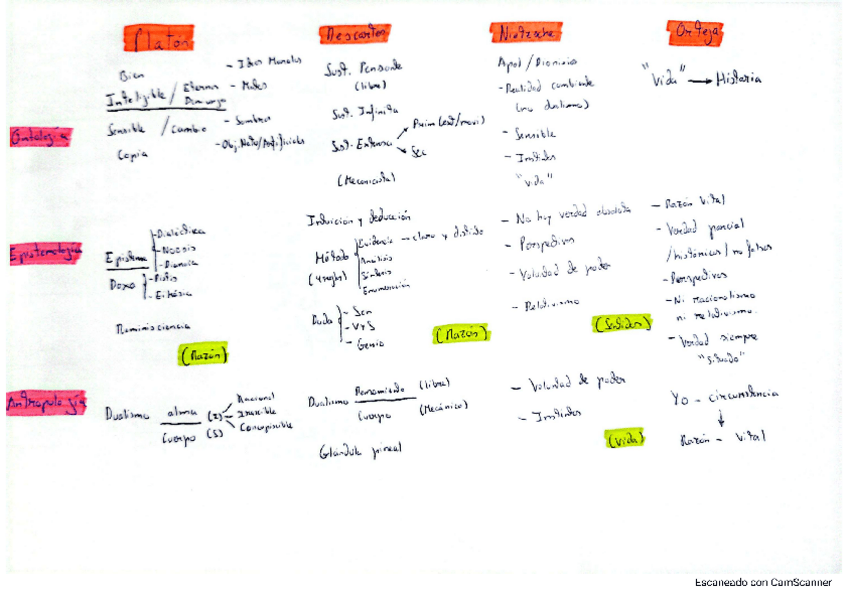 Platón
Descartes
Nietzsche
Orteja
Ontología
Bien
Inteligible / Eterno
Demiurgo
Sensible / Cambio
Copia
- Ideas Morales
- Mates
- Sombras
- Obj. Nat/Artificiales
Sust. Pensante
(libre)
Sust. Infinita
Sust. Extensa
Prim (ext/movi)
Sec
(Mecanicista)
Apol / Dionisio
- Realidad cambiante
(no dualismo)
- Sensible
- Instintos
"Vida"
"Vida" → Historia
Epistemología
Episteme
- Dialéctica
- Noesis
- Dianoia
Doxa
- Pistis
- Eikasia
Reminisciencia
(Razón)
Intuicion y deducción
Método
(4 reglas)
Evidencia — claro y distido
Análisis
Síntesis
Enumeración
Duda
- Sen
- VyS
- Genio
(Razón)
- No hay verdad absoluta
- Perspectivas
- Voluntad de poder
- Relativismo
(Sentidos)
- Razón Vital
- Verdad parcial
/históricas / no falsas
- Perspectivas
- Ni racionalismo
ni relativismo.
- Verdad siempre
"situada"
Antropología
Dualismo
alma (I)
Cuerpo (S)
Racional
Irascible
Concupisible
Dualismo
Pensamiento (libre)
Cuerpo (Mecánico)
Glándula pineal
- Voluntad de poder
- Instintos
(Vida)
Yo - circunstancia
↓
Razón - Vital
Escaneado con CamScanner